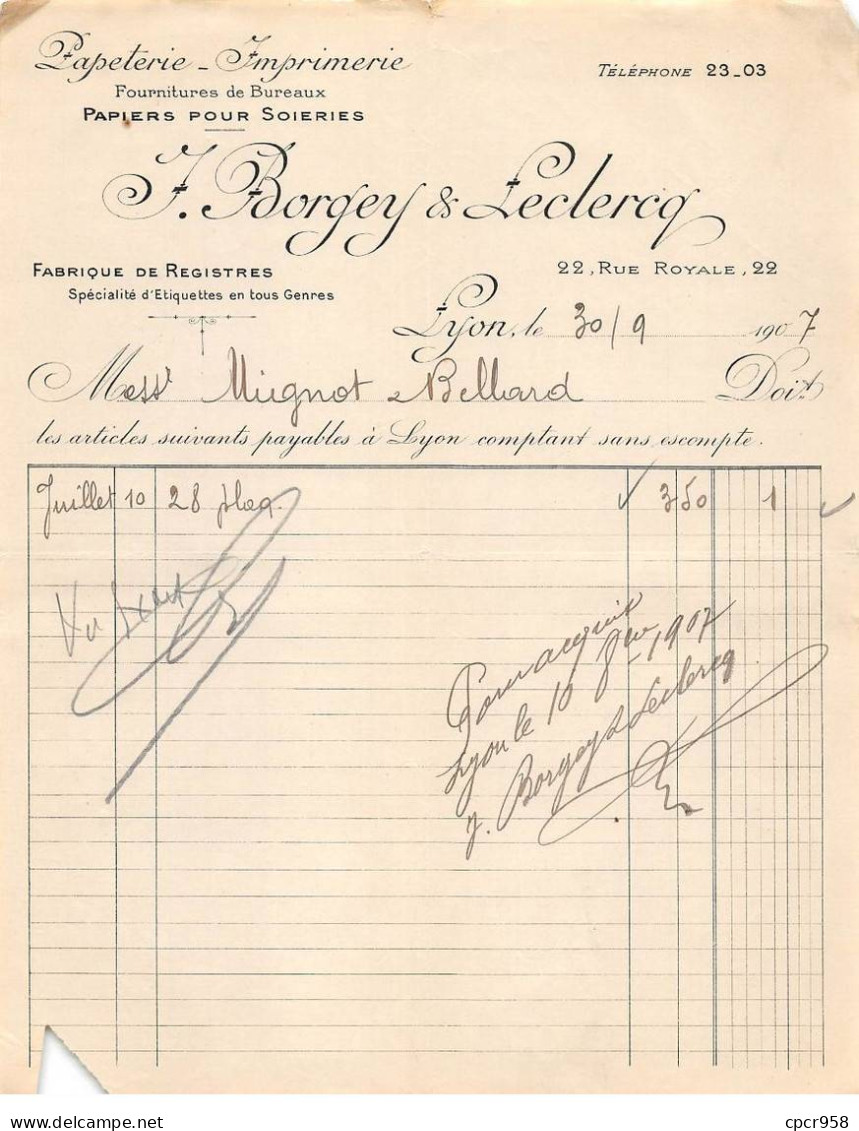 Papeterie - Imprimerie
Fournitures de Bureaux
PAPIERS POUR SOIERIES
TÉLÉPHONE 23-03
J. Borgey & Leclercq
FABRIQUE DE REGISTRES
Spécialité d'Etiquettes en tous Genres
22, RUE ROYALE, 22
Lyon, le 30/9 1907
Mess^rs Mugnot & Belhard Doit
les articles suivants payables à Lyon comptant sans escompte.
Juillet 10 28 350 1
Vu
Pour acquit
Lyon le 10 8bre 1907
J. Borgey & Leclercq
Delcampe.net
cpcr958